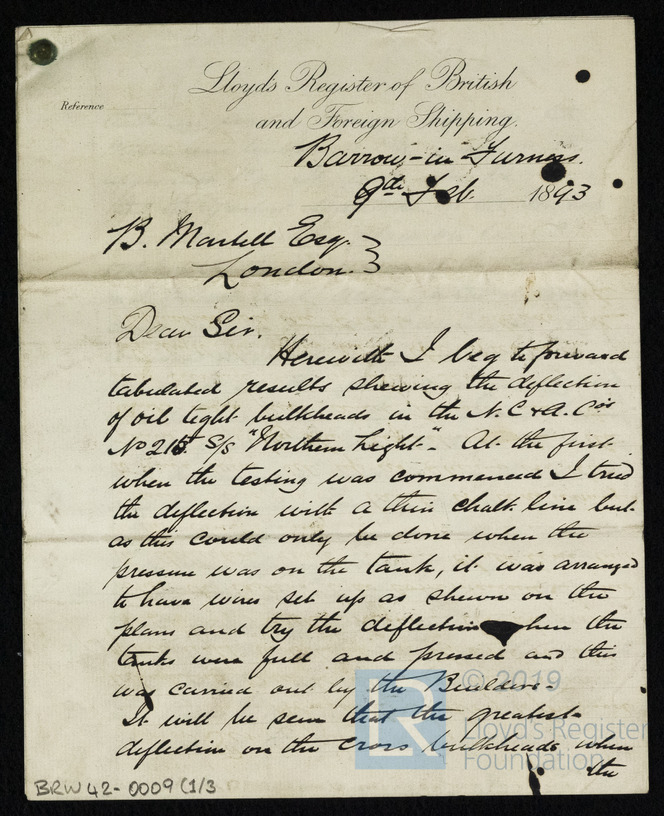 Lloyds Register of British
and Foreign Shipping.
Reference
Barrow-in-Furness.
9th Feb. 1893
B. Martell Esq.
London.
Dear Sir.
Herewith I beg to forward
tabulated results shewing the deflection
of oil tight bulkheads in the N. C & A. Co's
No 215 S/S "Northern Light". At the first
when the testing was commenced I tried
the deflection with a thin chalk line but
as this could only be done when the
pressure was on the tank, it was arranged
to have wires set up as shewn on the
plans and try the deflection when the
tanks were full and pressed and this
was carried out by the Builders.
It will be seen that the greatest
deflection on the cross bulkheads when
the
BRW42-0009 (1/3
© 2019
Lloyd's Register
Foundation
LR